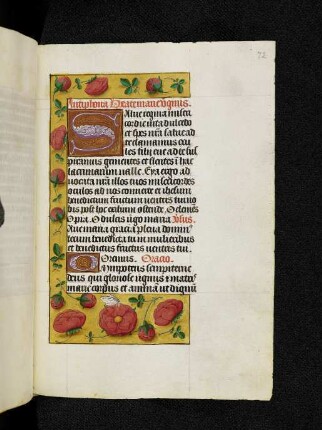 72
Antiphona Beate marie v̄ginis.
Salue regina miseri
cordie vita dulcedo
et spes nr̄a salue ad
te clamamus exu
les filij eue ad te sus
piramus gementes et flentes ī hac
lacrimarum valle. Eya ergo ad
uocata nr̄a illos tuos misericordes
oculos ad nos conuerte et ihesum
benedictum fructum ventris tui no
bis post hoc exilium ostende. O clemēs
O pia. O dulcis v̄go maria Vsus.
Aue maria gracia plena domin9
tecum benedicta tu in mulieribus
et benedictus fructus ventris tui.
Oremus. Oracio.
Omnipotens sempiterne
deus qui gloriose v̄ginis et matris
marie corpus et animā ut dignū